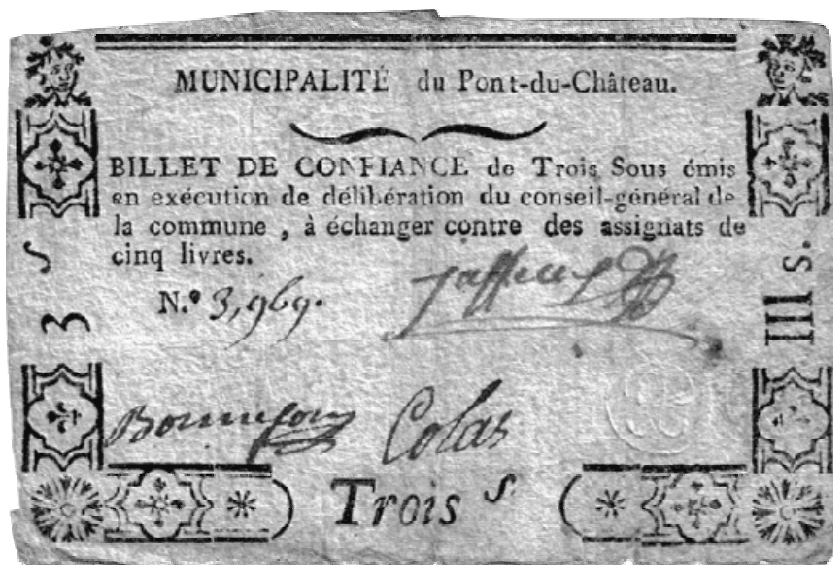 MUNICIPALITÉ du Pont-du-Château.
BILLET DE CONFIANCE de Trois Sous émis
en exécution de délibération du conseil-général de
la commune , à échanger contre des assignats de
cinq livres.
N.º 3,969.
3 S
III s.
Colas
Trois s